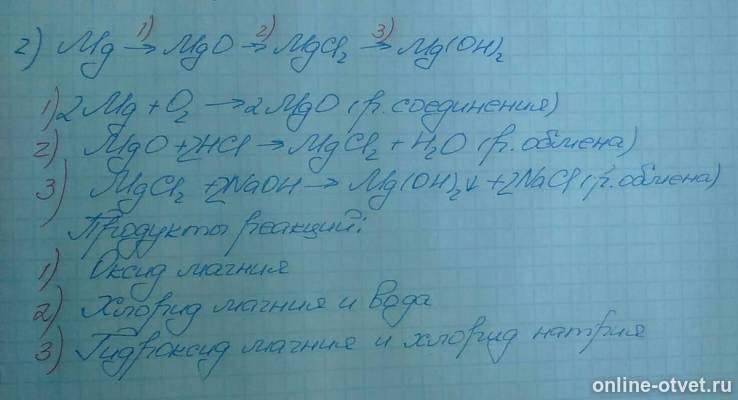 2) Mg 1)→ MgO 2)→ MgCl₂ 3)→ Mg(OH)₂
1) 2Mg + O₂ → 2MgO (р. соединения)
2) MgO + 2HCl → MgCl₂ + H₂O (р. обмена)
3) MgCl₂ + 2NaOH → Mg(OH)₂↓ + 2NaCl (р. обмена)
Продукты реакций:
1) Оксид магния
2) Хлорид магния и вода
3) Гидроксид магния и хлорид натрия
online-otvet.ru